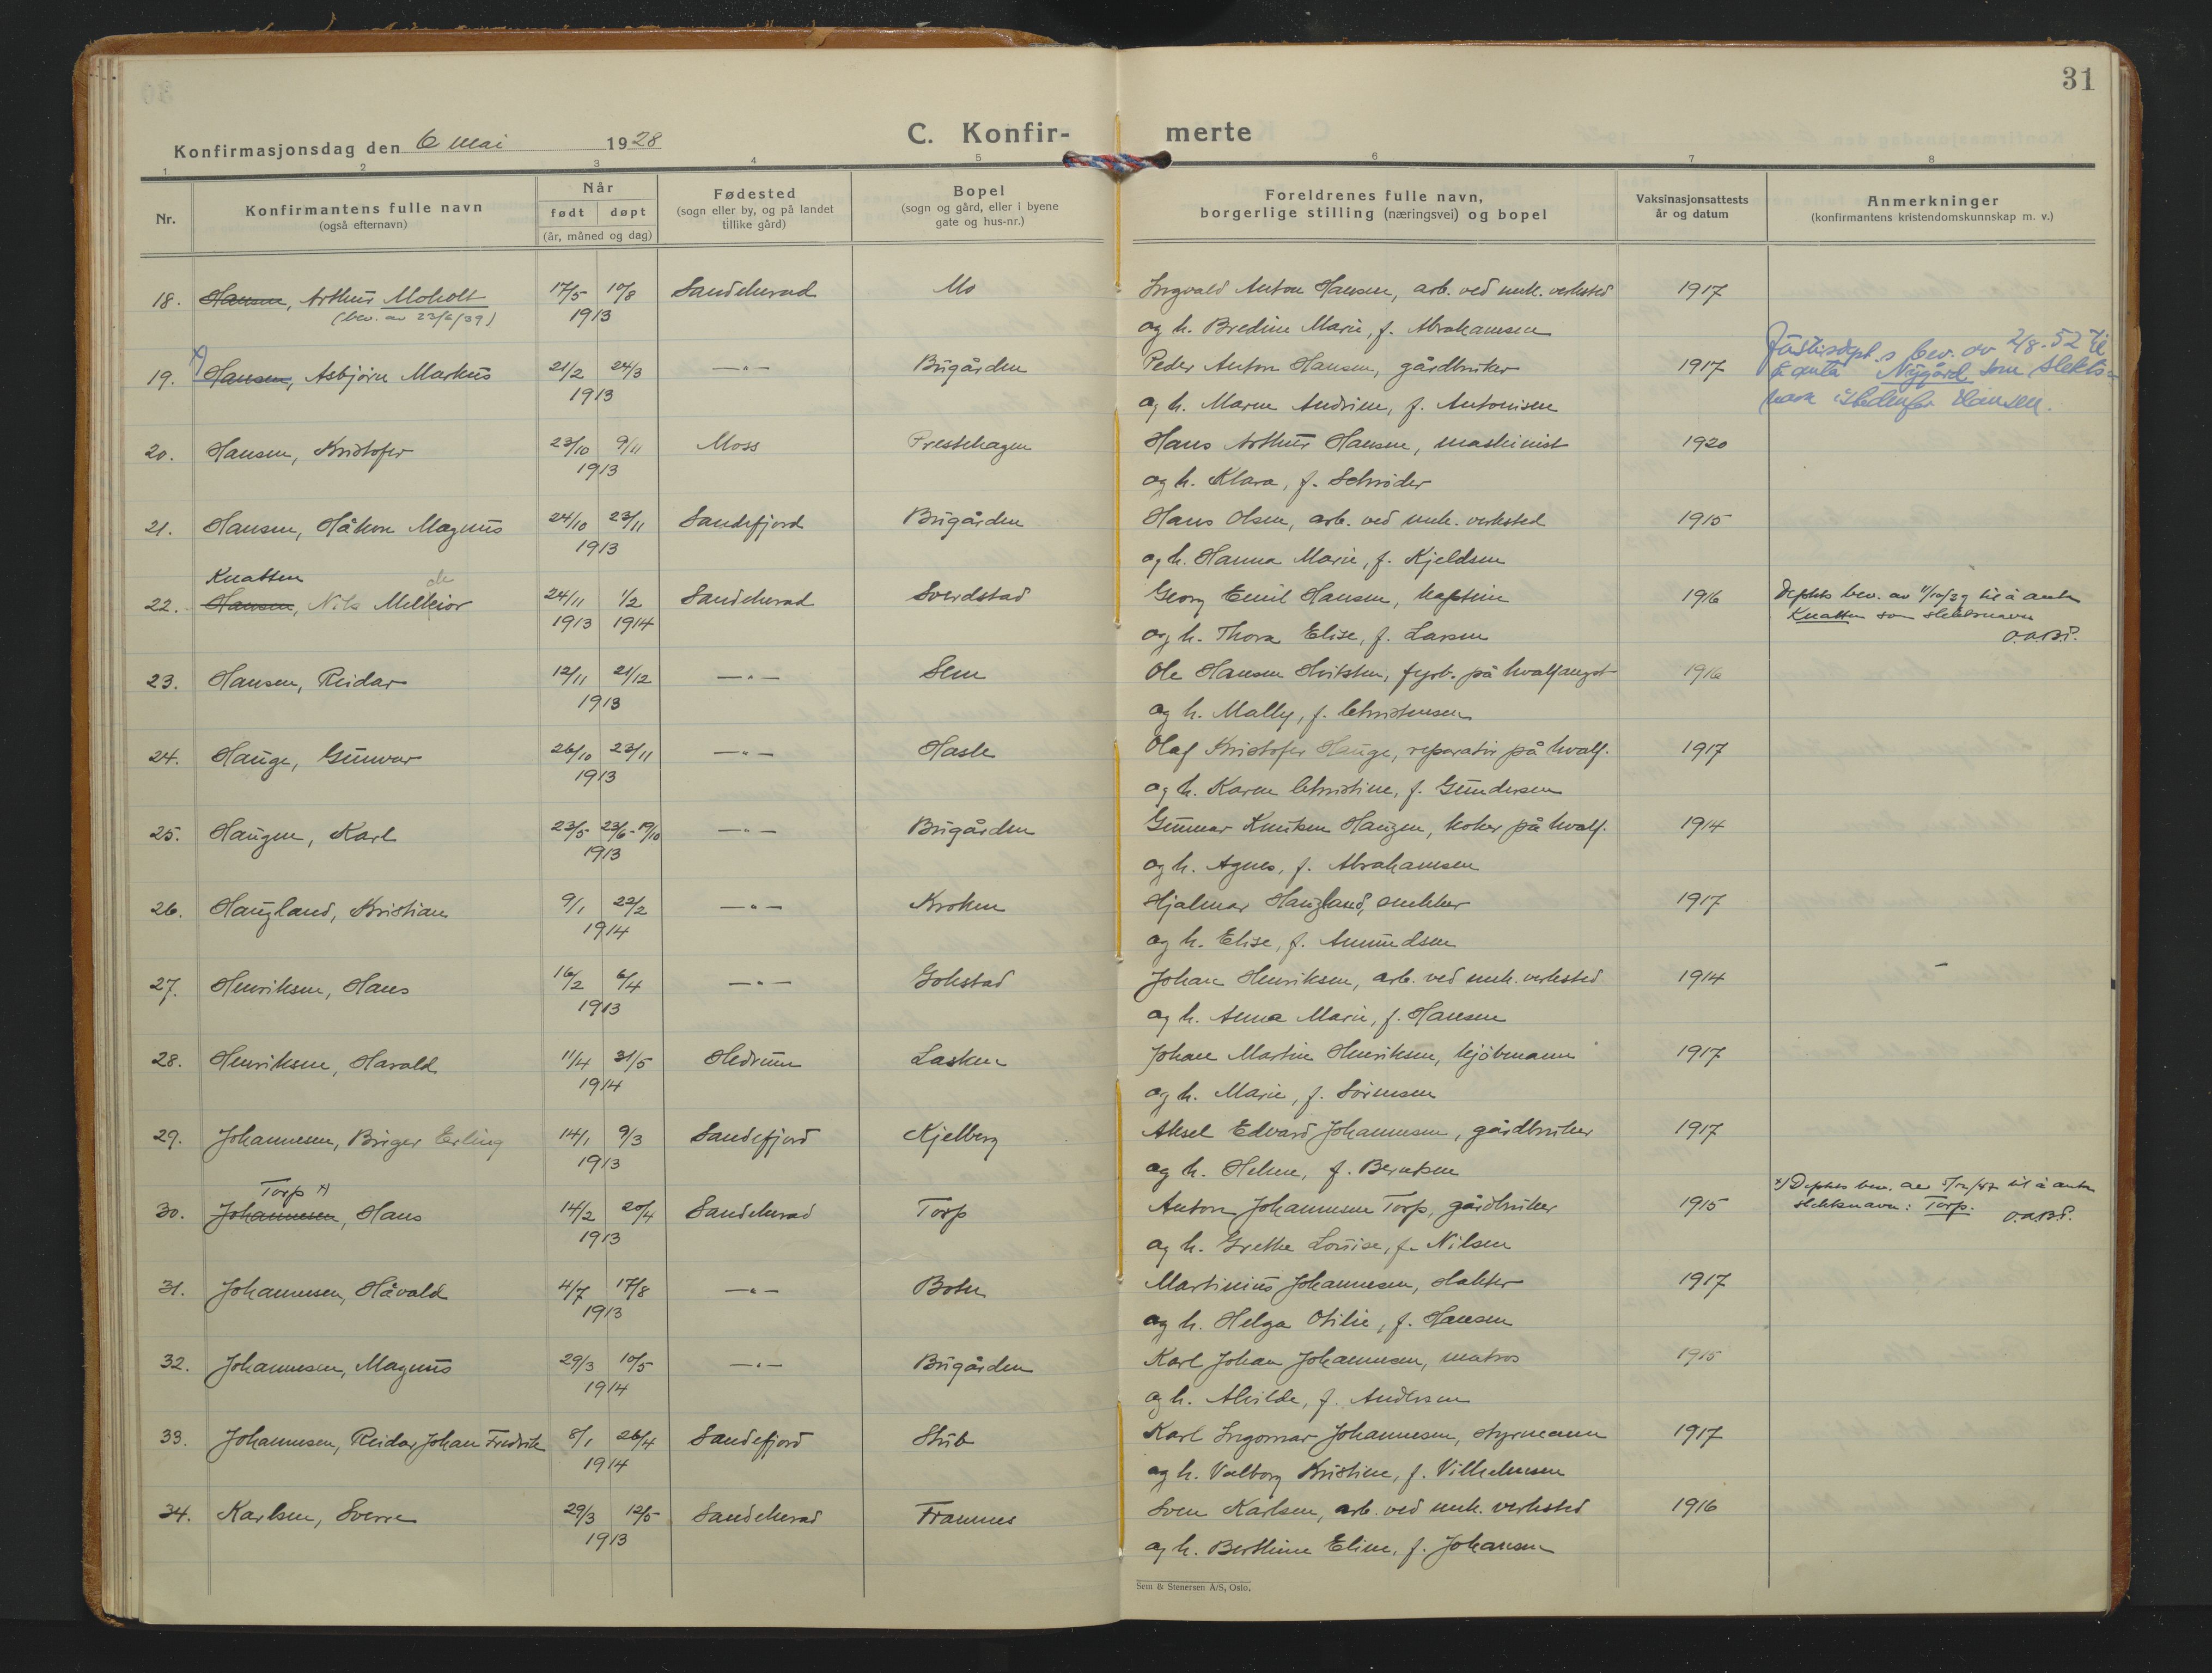 31
Konfirmasjonsdag den 6 mai 1928
C. Konfir- merte
1 2 3 4 5 6 7 8
Nr.
Konfirmantens fulle navn
(også efternavn)
Når
født døpt
(år, måned og dag)
Fødested
(sogn eller by, og på landet
tillike gård)
Bopel
(sogn og gård, eller i byene
gate og hus-nr.)
Foreldrenes fulle navn,
borgerlige stilling (næringsvei) og bopel
Vaksinasjonsattests
år og datum
Anmerkninger
(konfirmantens kristendomskunnskap m. v.)
18. Hansen, Arthur Moholt 17/5 10/8 Sandeherad Mo Ingvald Anton Hansen, arb. ved mek. verksted 1917
(bev. av 23/6/39) 1913 og h. Bredine Marie, f. Abrahamsen
19. x) Hansen, Asbjørn Markus 21/2 24/3 —"— Bugården Peder Anton Hansen, gårdbruker 1917 Justisdept.s bev. av 2/8.52 til
1913 og h. Maren Andrine, f. Antonisen å anta Nygård som slekts-
navn istedenfor Hansen.
20. Hansen, Kristofer 23/10 9/11 Moss Prestehagen Hans Arthur Hansen, maskinist 1920
1913 og h. Klara, f. Schrøder
21. Hansen, Håkon Magnus 24/10 23/11 Sandefjord Bugården Hans Olsen, arb. ved mek. verksted 1915
1913 og h. Hanna Marie, f. Kjeldsen
Knatten
22. Hansen, Nils Melkior 24/11 1/2 Sandeherad Sverdstad Georg Emil Hansen, kaptein 1916 Depts bev. av 11/10/39 til å anta
1913 1914 og h. Thora Elise, f. Larsen Knatten som slektsnavn
O.A.B.P.
23. Hansen, Reidar 12/11 21/12 —"— Sem Ole Hansen Hvitsten, fyrb. på hvalfangst 1916
1913 og h. Mally, f. Christensen
24. Hauge, Gunvar 26/10 23/11 —"— Hasle Olaf Kristofer Hauge, reparatør på hvalf. 1917
1913 og h. Karen Christine, f. Gundersen
25. Haugen, Karl 23/5 23/6-19/10 —"— Bugården Gunnar Knutsen Haugen, koker på hvalf. 1914
1913 og h. Agnes, f. Abrahamsen
26. Haugland, Kristian 9/1 22/2 —"— Kroken Hjalmar Haugland, snekker 1917
1914 og h. Elise, f. Amundsen
27. Henriksen, Hans 16/2 6/4 —"— Gokstad Johan Henriksen, arb. ved mek. verksted 1914
1913 og h. Anna Marie, f. Hansen
28. Henriksen, Harald 11/4 31/5 Hedrum Lasken Johan Martin Henriksen, kjøbmann 1917
1914 og h. Marie, f. Sørensen
29. Johannesen, Birger Erling 14/1 9/3 Sandefjord Kjelberg Aksel Edvard Johannesen, gårdbruker 1917
1913 og h. Helene, f. Berntsen
Torp x)
30. Johannesen, Hans 14/2 20/4 Sandeherad Torp Anton Johannesen Torp, gårdbruker 1915 x) Depts bev. av til å anta
1913 og h. Grethe Louise, f. Nilsen slektsnavn: Torp. O.A.B.P.
31. Johannesen, Håvald 4/7 17/8 —"— Boten Martinius Johannesen, slakter 1917
1913 og h. Helga Otilie, f. Hansen
32. Johannesen, Magnus 29/3 10/5 —"— Bugården Karl Johan Johannesen, matros 1915
1914 og h. Alvilde, f. Andersen
33. Johannesen, Reidar Johan Fredrik 8/1 26/4 Sandefjord Stub Karl Ingomar Johannesen, styrmann 1917
1914 og h. Valborg Kristine, f. Vilhelmsen
34. Karlsen, Sverre 29/3 12/5 Sandeherad Framnes Sven Karlsen, arb. ved mek. verksted 1916
1913 og h. Berthine Eline, f. Johansen
Sem & Stenersen A/S, Oslo.